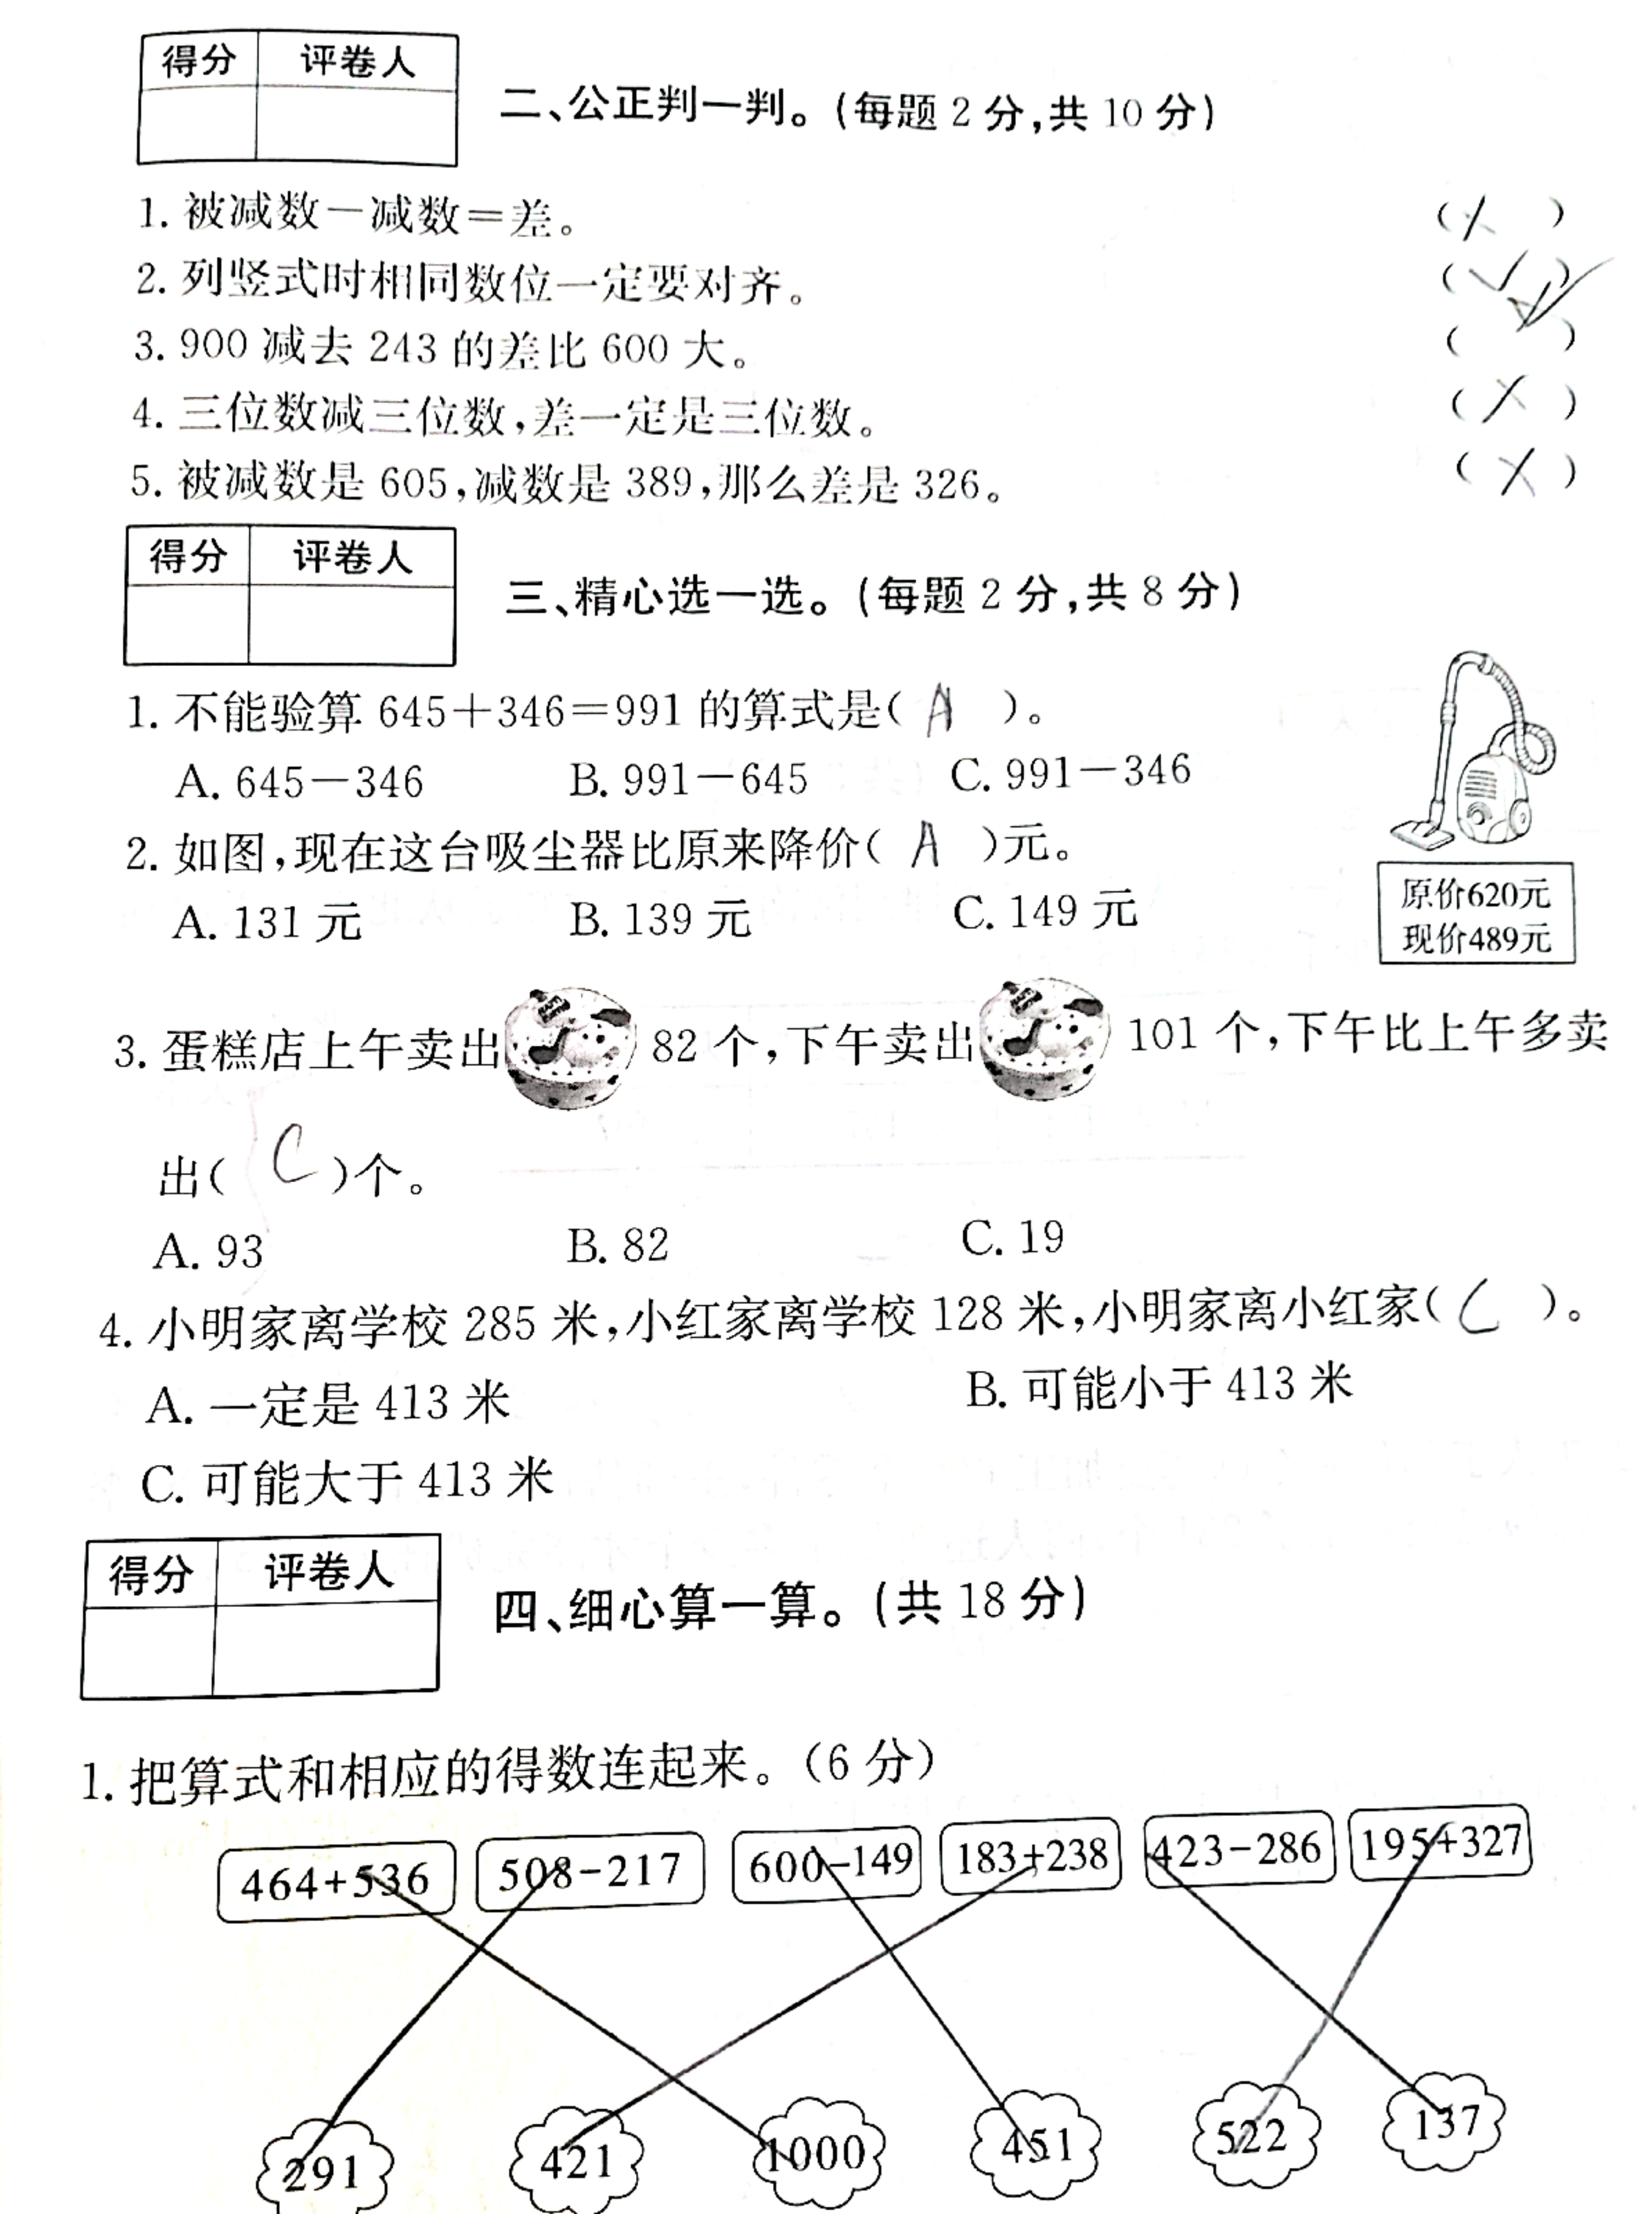 得分 评卷人
二、公正判一判。(每题 2 分,共 10 分)
1. 被减数－减数＝差。 (✗)
2. 列竖式时相同数位一定要对齐。 (✓)
3. 900 减去 243 的差比 600 大。 (✓)
4. 三位数减三位数,差一定是三位数。 (✗)
5. 被减数是 605,减数是 389,那么差是 326。 (✗)
得分 评卷人
三、精心选一选。(每题 2 分,共 8 分)
1. 不能验算 645＋346＝991 的算式是( A )。
A. 645－346 B. 991－645 C. 991－346
2. 如图,现在这台吸尘器比原来降价( A )元。
A. 131 元 B. 139 元 C. 149 元
原价620元
现价489元
3. 蛋糕店上午卖出 82 个,下午卖出 101 个,下午比上午多卖
出( C )个。
A. 93 B. 82 C. 19
4. 小明家离学校 285 米,小红家离学校 128 米,小明家离小红家( C )。
A. 一定是 413 米 B. 可能小于 413 米
C. 可能大于 413 米
得分 评卷人
四、细心算一算。(共 18 分)
1. 把算式和相应的得数连起来。(6 分)
464+536 508−217 600−149 183+238 423−286 195+327
291 421 1000 451 522 137